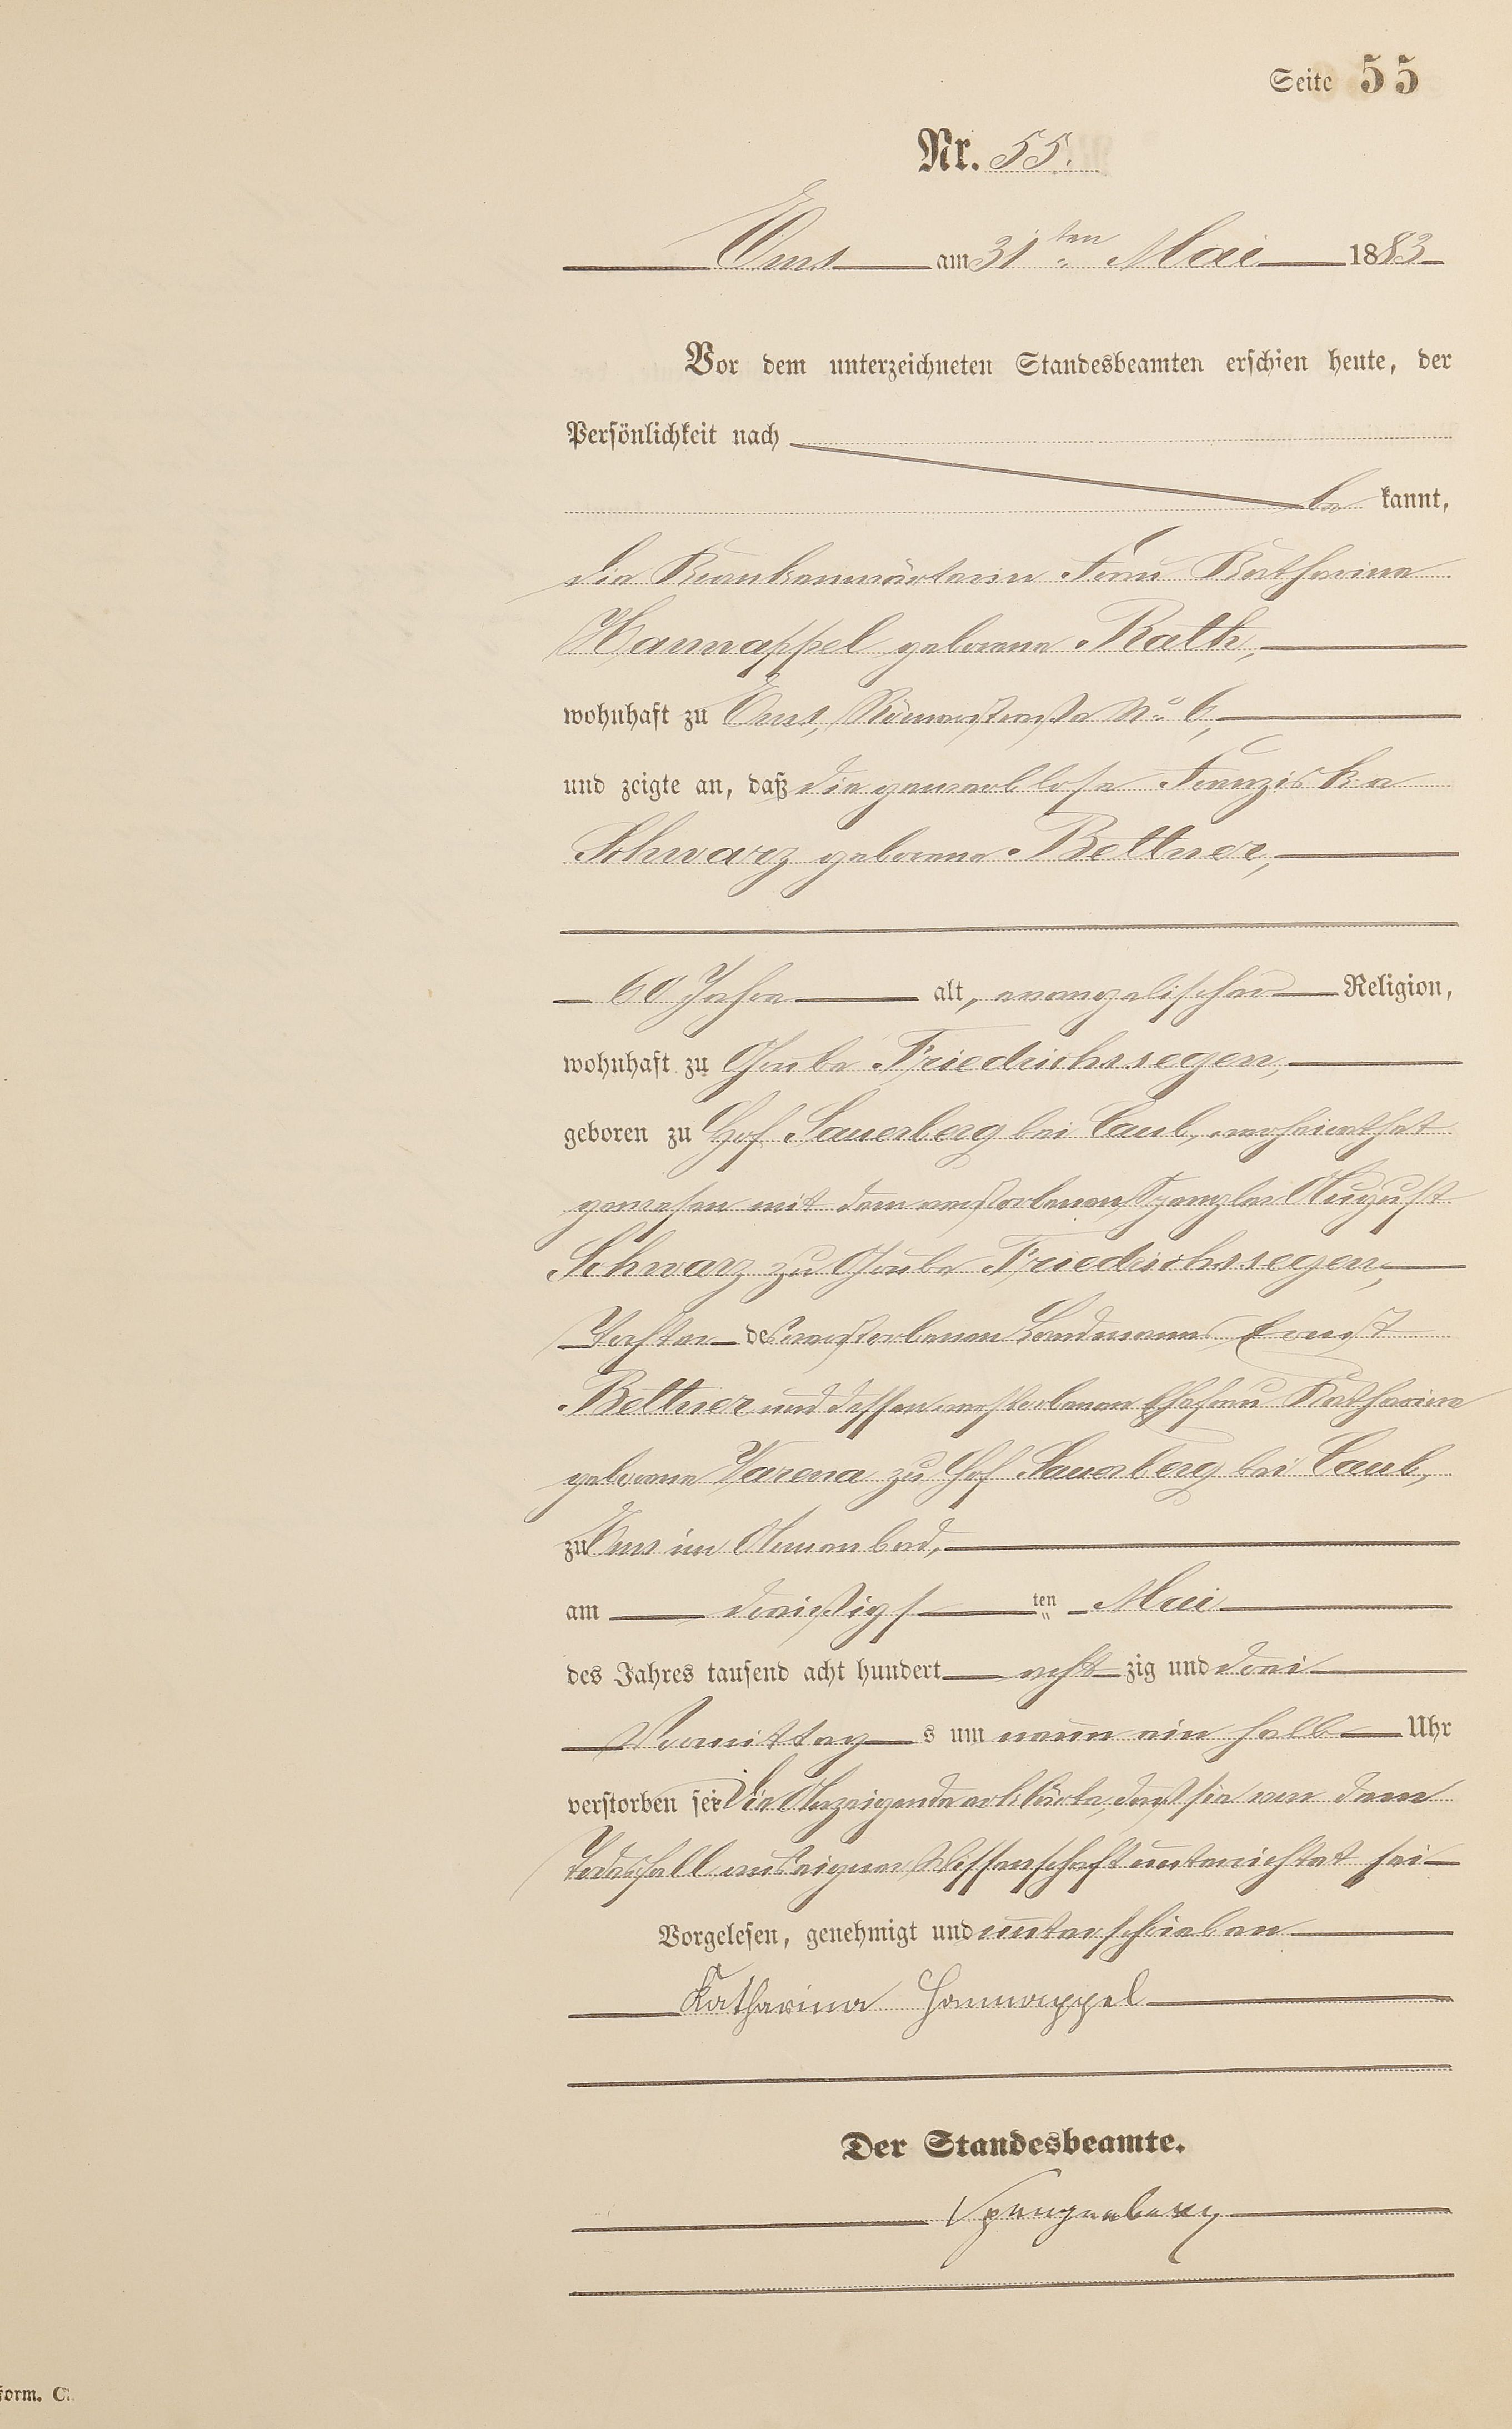 Seite 55
Nr. 55.
Ems am 31ten Mai 1883
Vor dem unterzeichneten Standesbeamten erschien heute, der
Persönlichkeit nach
be kannt,
die Krankenwärterin Frau Katharina
Hannappel geborene Rath,
wohnhaft zu Ems, Römerstraße No 6,
und zeigte an, daß die gewerblose Franziska
Schwarz geborene Bettner,
60 Jahre alt, evangelischer Religion,
wohnhaft zu Grube Friedrichssegen,
geboren zu Hof Sauerberg bei Caub, verheirathet
gewesen mit dem verstorbenen Spengler August
Schwarz zu Grube Friedrichssegen,
Tochter des verstorbenen Landmanns Ernst
Bettner und dessen verstorbenen Ehefrau Katharina
geborene Varena zu Hof Sauerberg bei Caub,
zu Ems im Armenbad,
am dreißigs ten Mai
des Jahres tausend acht hundert acht zig und drei
Vormittag s um neun ein halb Uhr
verstorben sei. Die Anzeigende erklärte, daß sie von dem
Todesfall aus eigner Wissenschaft unterrichtet sei
Vorgelesen, genehmigt und unterschrieben
Katharina Hannappel
Der Standesbeamte.
Spangenberg
form. C.